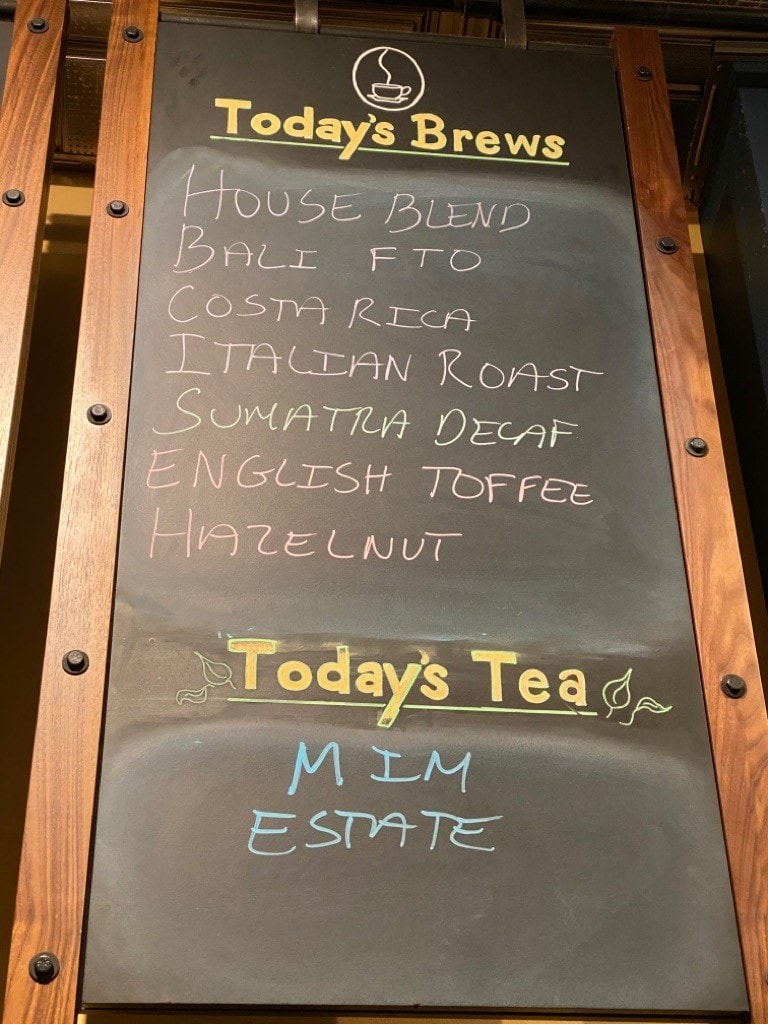 Today's Brews
HOUSE BLEND
BALI FTO
COSTA RICA
ITALIAN ROAST
SUMATRA DECAF
ENGLISH TOFFEE
HAZELNUT
Today's Tea
MIM
ESTATE